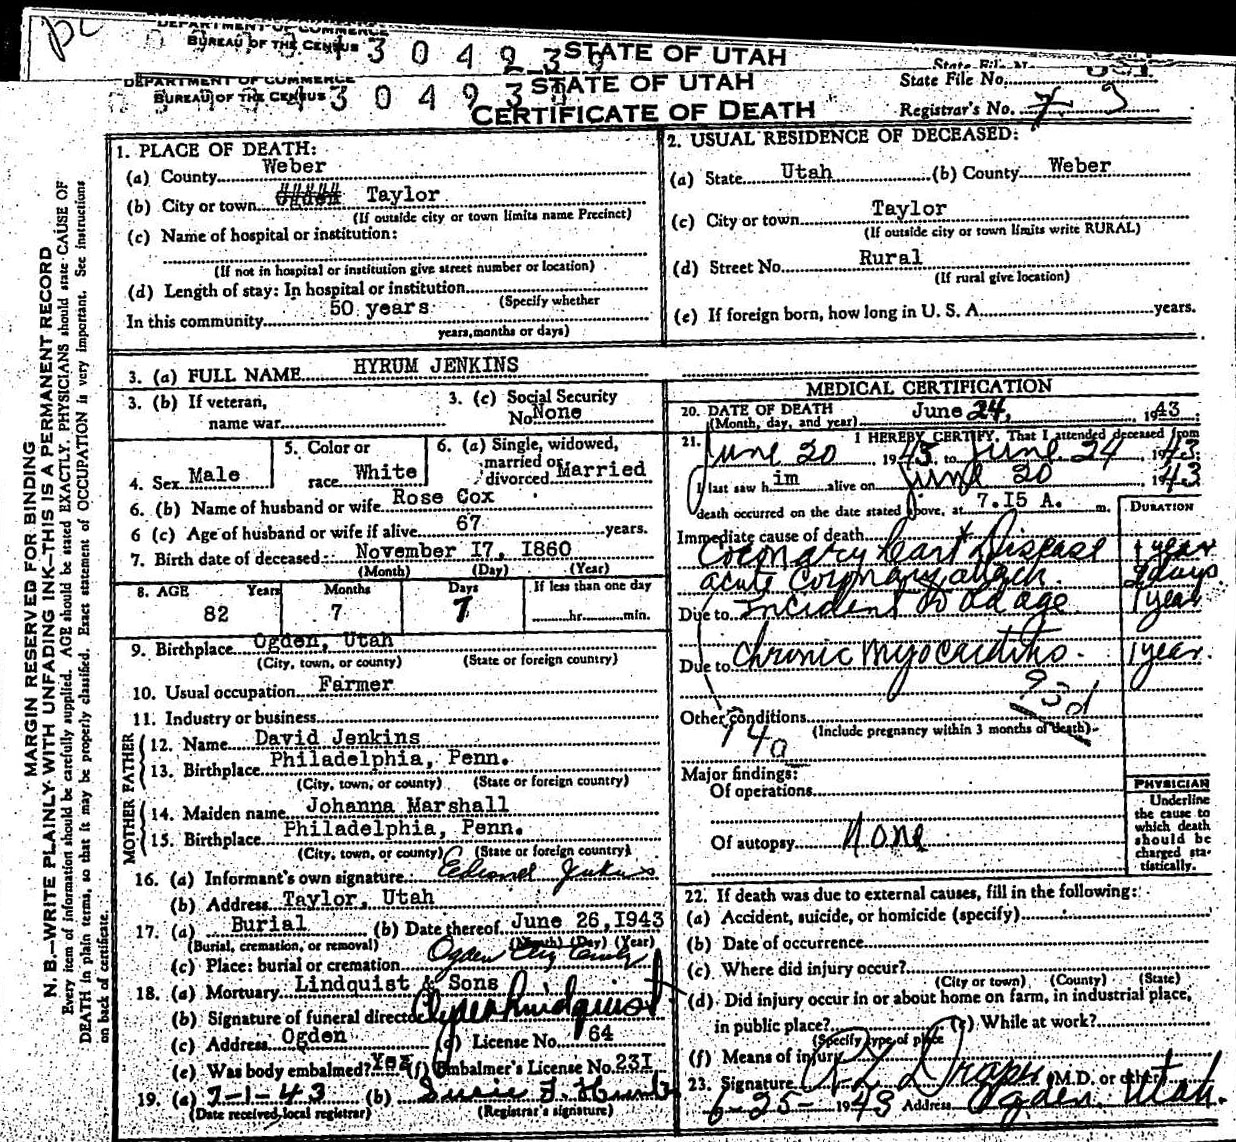 DEPARTMENT OF COMMERCE
BUREAU OF THE CENSUS
STATE OF UTAH
DEPARTMENT OF COMMERCE
BUREAU OF THE CENSUS
STATE OF UTAH
CERTIFICATE OF DEATH
State File No.
Registrar's No.
MARGIN RESERVED FOR BINDING
N. B.—WRITE PLAINLY WITH UNFADING INK—THIS IS A PERMANENT RECORD
Every item of information should be carefully supplied. AGE should be stated EXACTLY. PHYSICIANS should state CAUSE OF
DEATH in plain terms, so that it may be properly classified. Exact statement of OCCUPATION is very important. See instructions
on back of certificate.
1. PLACE OF DEATH:
(a) County Weber
(b) City or town Ogden Taylor
(If outside city or town limits name Precinct)
(c) Name of hospital or institution:
(If not in hospital or institution give street number or location)
(d) Length of stay: In hospital or institution
(Specify whether
In this community 50 years
years, months or days)
2. USUAL RESIDENCE OF DECEASED:
(a) State Utah (b) County Weber
(c) City or town Taylor
(If outside city or town limits write RURAL)
(d) Street No. Rural
(If rural give location)
(e) If foreign born, how long in U. S. A. years.
3. (a) FULL NAME HYRUM JENKINS
3. (b) If veteran,
name war
3. (c) Social Security
No. None
4. Sex Male
5. Color or
race White
6. (a) Single, widowed,
married or
divorced Married
6. (b) Name of husband or wife Rose Cox
6 (c) Age of husband or wife if alive 67 years.
7. Birth date of deceased: November I7, I860
(Month) (Day) (Year)
8. AGE Years Months Days If less than one day
82 7 7 hr. min.
9. Birthplace Ogden, Utah
(City, town, or county) (State or foreign country)
10. Usual occupation Farmer
11. Industry or business
FATHER
12. Name David Jenkins
13. Birthplace Philadelphia, Penn.
(City, town, or county) (State or foreign country)
MOTHER
14. Maiden name Johanna Marshall
15. Birthplace Philadelphia, Penn.
(City, town, or county) (State or foreign country)
16. (a) Informant's own signature Jenkins
(b) Address Taylor, Utah
17. (a) Burial (b) Date thereof June 26, I943
(Burial, cremation, or removal) (Month) (Day) (Year)
(c) Place: burial or cremation Ogden City
18. (a) Mortuary Lindquist & Sons
(b) Signature of funeral director Lindquist
(c) Address Ogden (d) License No. 64
(e) Was body embalmed? Yes (f) Embalmer's License No. 23I
19. (a) 7-1-43 (b) Susie
(Date received local registrar) (Registrar's signature)
MEDICAL CERTIFICATION
20. DATE OF DEATH June 24, 1943
(Month, day, and year)
21. I HEREBY CERTIFY, That I attended deceased from
June 20 1943, to June 24, 1943
I last saw him alive on June 20 1943
death occurred on the date stated above, at 7.I5 A. m.
DURATION
Immediate cause of death
Coronary Heart Disease 1 year
acute Coronary attack. 2 days
Due to incident to old age 1 year
Due to Chronic Myocarditis. 1 year.
93d
Other conditions
(Include pregnancy within 3 months of death)
94a
Major findings:
Of operations
Of autopsy None
PHYSICIAN
Underline
the cause to
which death
should be
charged sta-
tistically.
22. If death was due to external causes, fill in the following:
(a) Accident, suicide, or homicide (specify)
(b) Date of occurrence
(c) Where did injury occur?
(City or town) (County) (State)
(d) Did injury occur in or about home on farm, in industrial place,
in public place? (e) While at work?
(Specify type of place
(f) Means of injury
23. Signature Draper (M.D. or other)
6-25-1943 Address Ogden Utah.